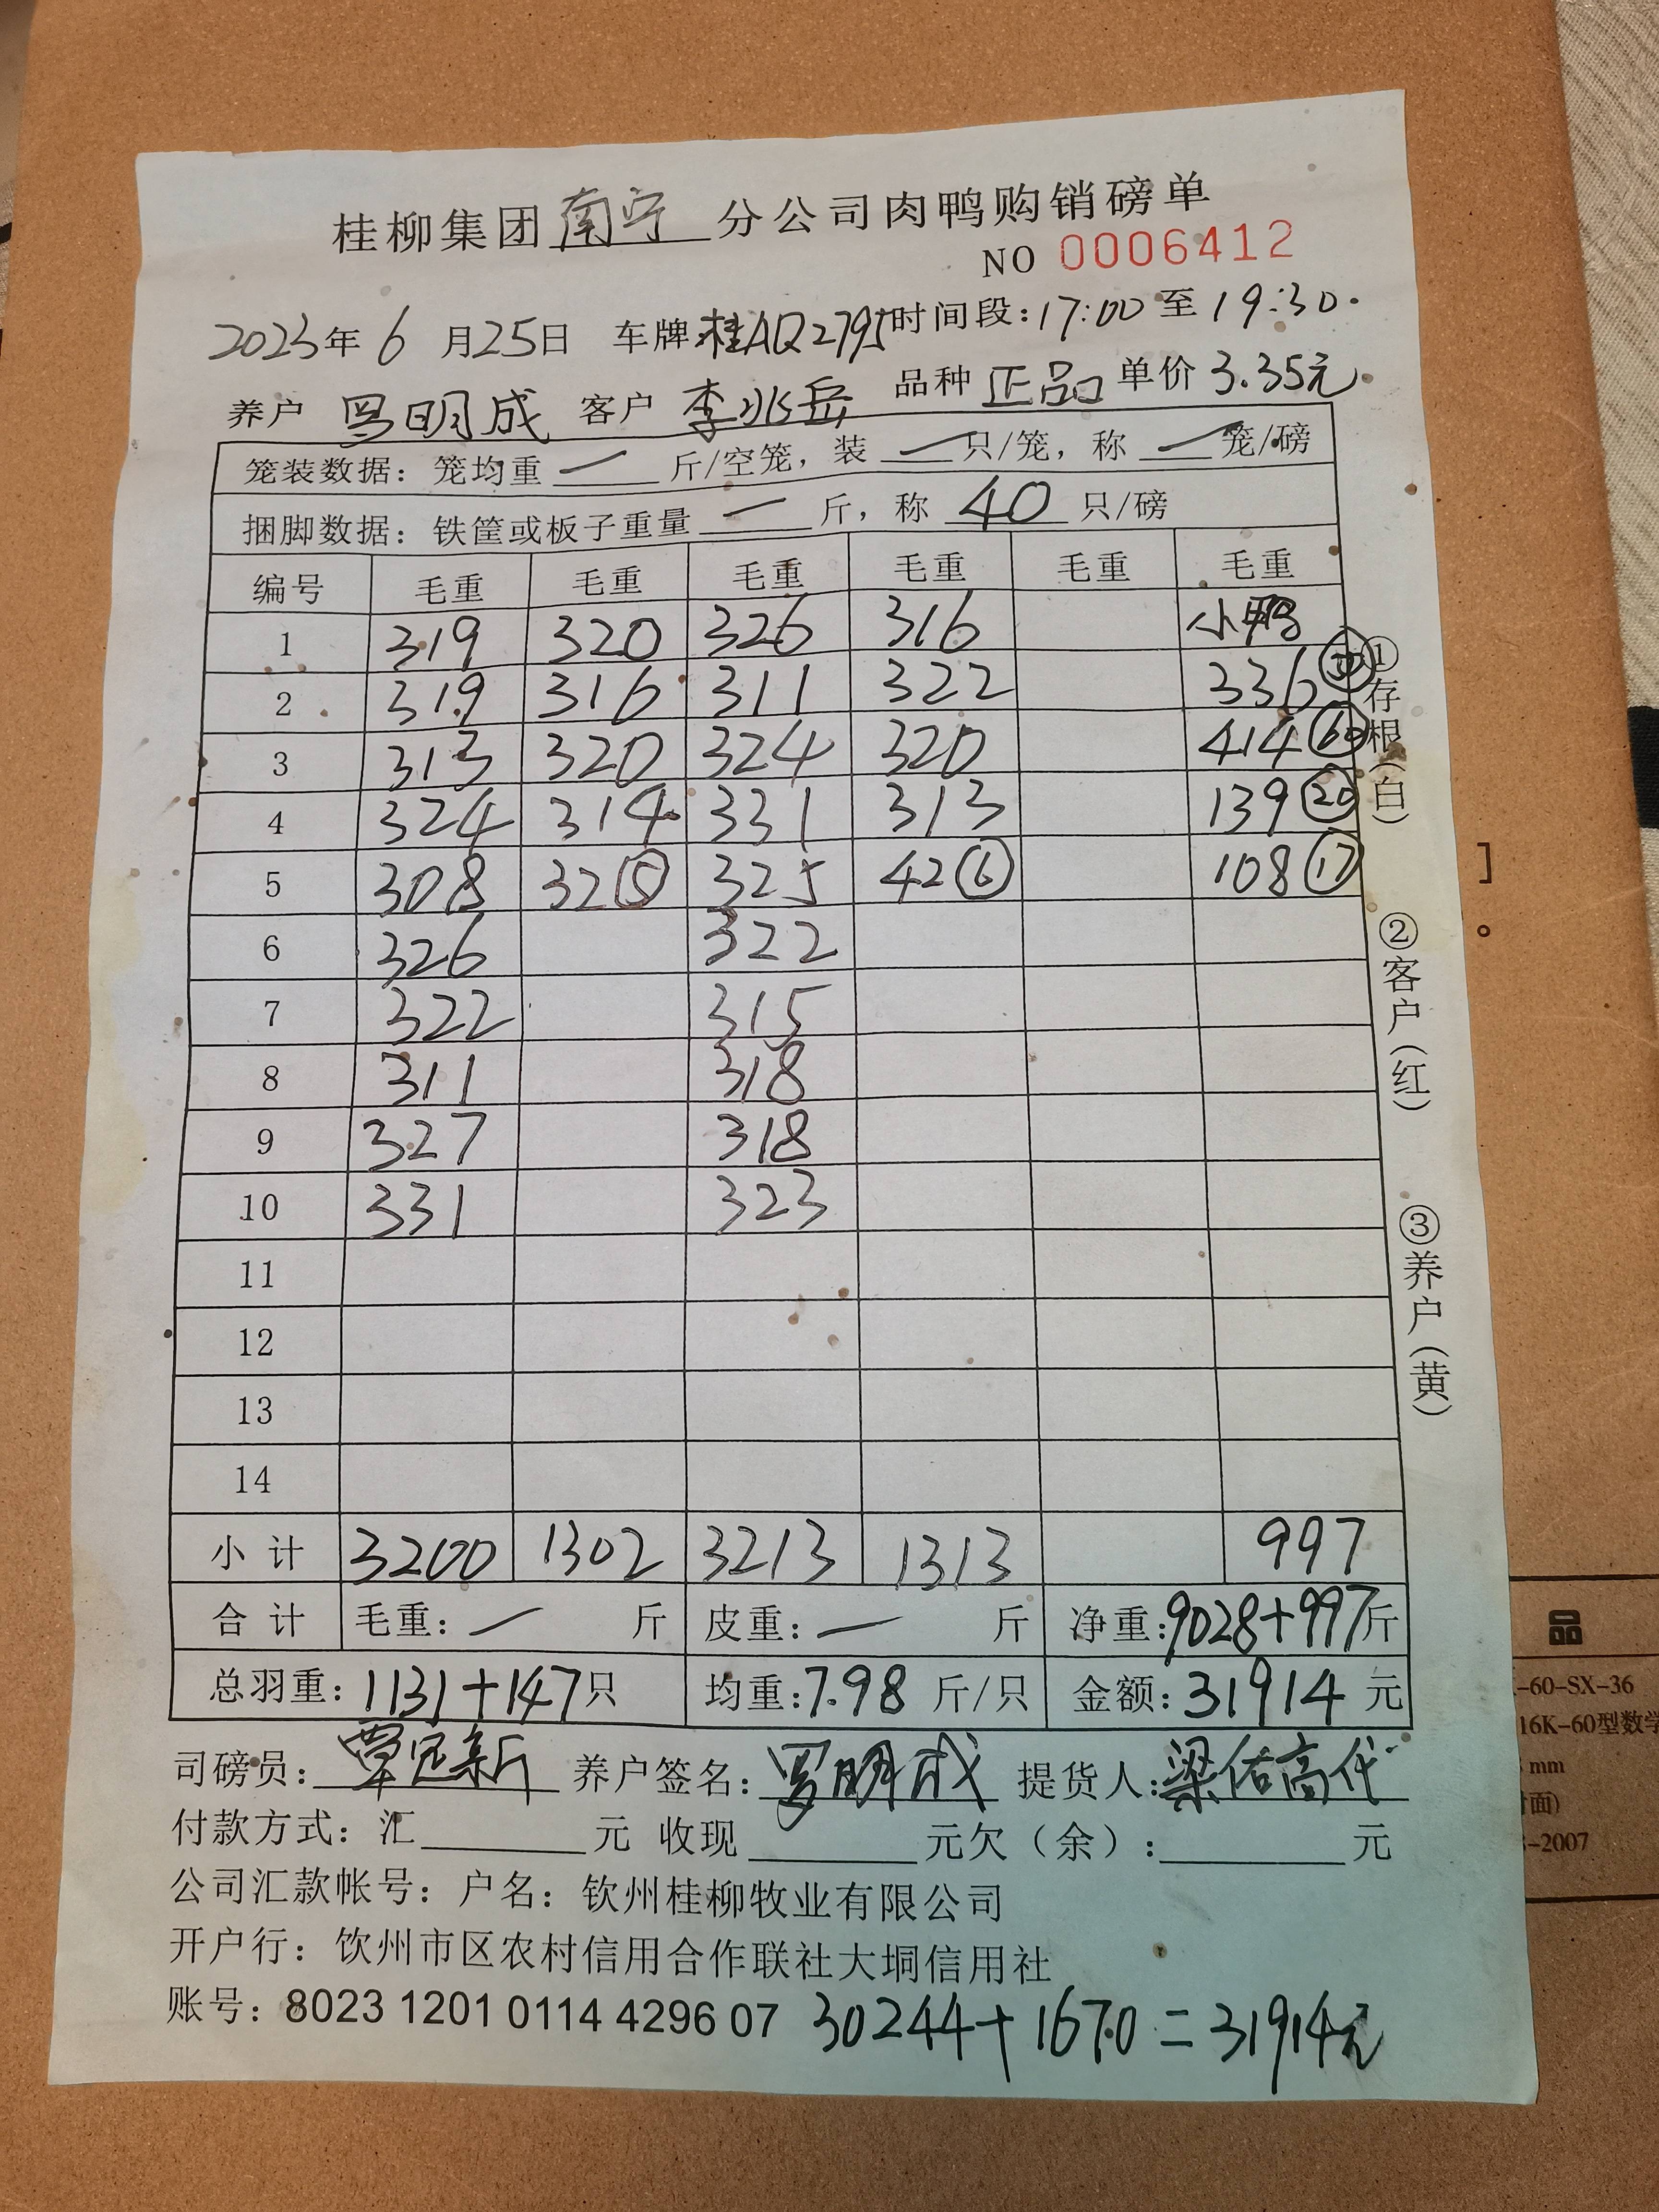 桂柳集团南宁分公司肉鸭购销磅单
NO 0006412
2023年6月25日 车牌:桂AQ2795 时间段:17:00至19:30.
养户 罗明成 客户 李兆岳 品种 正品 单价 3.35元.
笼装数据: 笼均重 一 斤/空笼, 装 一 只/笼, 称 一 笼/磅
捆脚数据: 铁筐或板子重量 一 斤, 称 40 只/磅
编号 毛重 毛重 毛重 毛重 毛重 毛重
1 319 320 326 316 小鸭
2 319 316 311 322 336
3 313 320 324 320 414 60
4 324 314 331 313 139 20
5 308 32 5 325 42 6 108 17
6 326 322
7 322 315
8 311 318
9 327 318
10 331 323
11
12
13
14
小计 3200 1302 3213 1313 997
合计 毛重: 一 斤 皮重: 一 斤 净重:9028+997斤
总羽重: 1131+147只 均重:7.98 斤/只 金额:31914 元
司磅员: 覃 新 养户签名: 罗明成 提货人:梁佑高代
付款方式: 汇 元 收现 元欠(余): 元
公司汇款帐号: 户名: 钦州桂柳牧业有限公司
开户行: 钦州市区农村信用合作联社大垌信用社
账号: 8023 1201 0114 4296 07 30244+1670=31914元
①存根(白)
②客户(红)
③养户(黄)
]
。
品
-60-SX-36
16K-60型数学
mm
面)
-2007